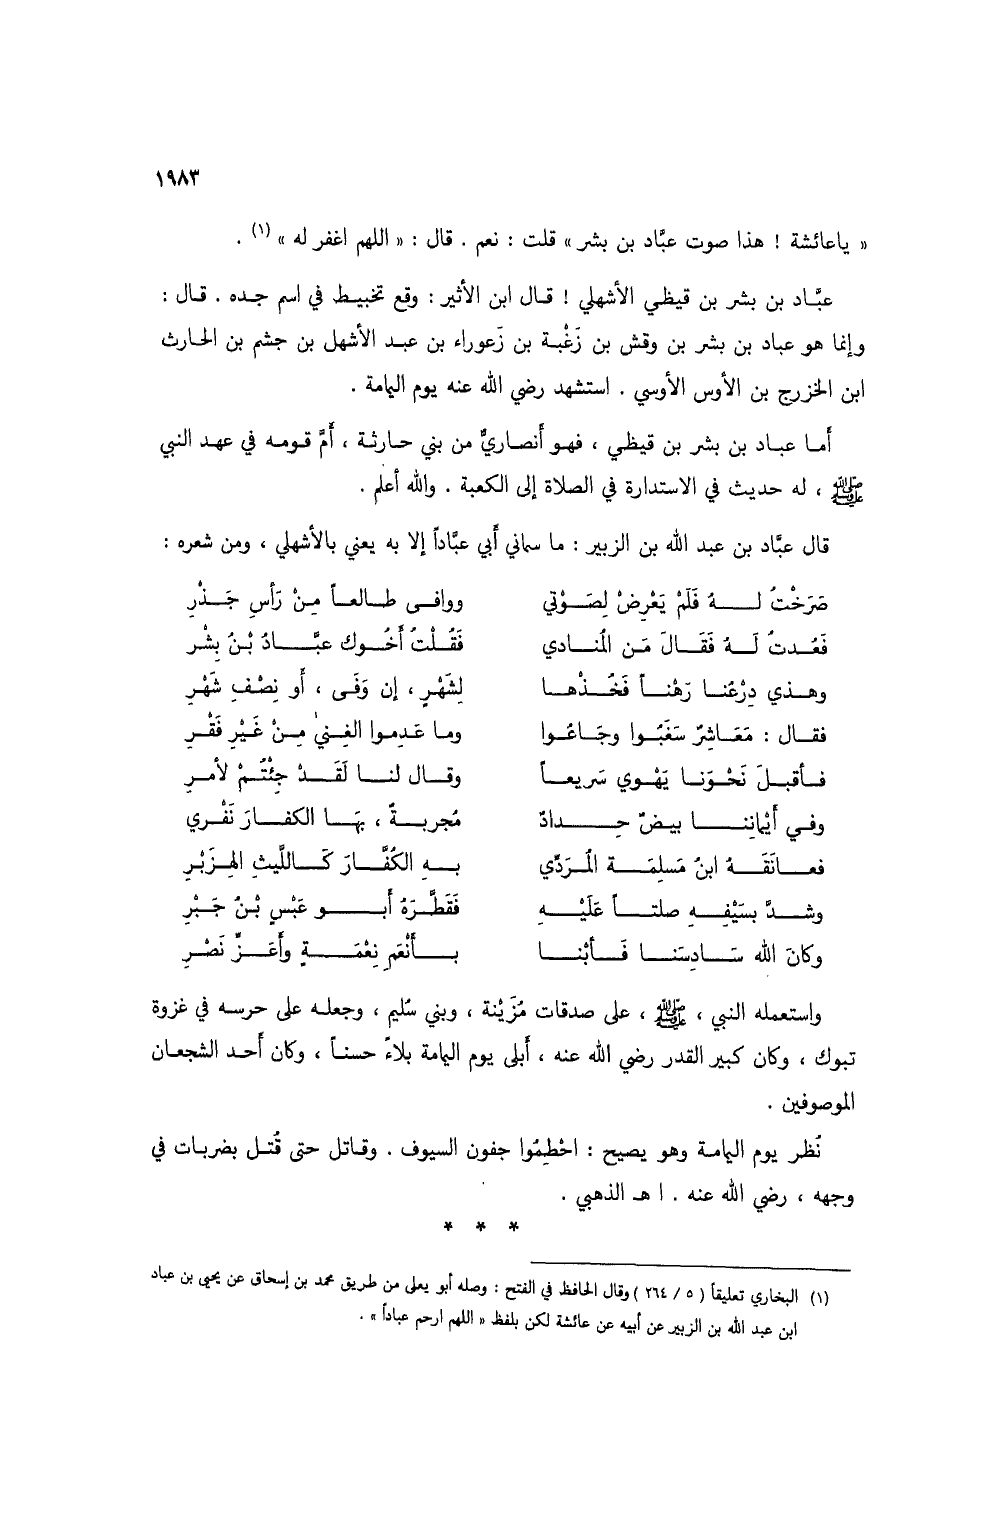 ١٩٨٣
« ياعائشة ! هذا صوت عبَّاد بن بشر» قلت : نعم . قال : « اللهم اغفر له » (١) .
عبَّاد بن بشر بن قيظي الأشهلي ! قال ابن الأثير : وقع تخبيط في اسم جده . قال :
وإنما هو عباد بن بشر بن وقش بن زَغْبة بن زَعوراء بن عبد الأشهل بن جشم بن الحارث
ابن الخزرج بن الأوس الأوسي . استشهد رضي الله عنه يوم اليمامة .
أما عباد بن بشر بن قيظي ، فهو أنصاريٌّ من بني حارثة ، أمَّ قومه في عهد النبي
ﷺ ، له حديث في الاستدارة في الصلاة إلى الكعبة . والله أعلم .
قال عبَّاد بن عبد الله بن الزبير : ما سماني أبي عبَّاداً إلا به يعني بالأشهلي ، ومن شعره :
صَرَخْتُ لهُ فَلَمْ يَعْرِضْ لِصَوْتي ووافى طالعاً مِنْ رَأسِ جَذْرِ
فَعُدتُ لَهُ فَقَالَ مَن المُنادي فَقُلْتُ أخُوك عبَّادُ بْنُ بِشْر
وهذي دِرْعُنا رَهْناً فَخُذْها لِشَهْرٍ ، إن وَفَى ، أو نِصْفِ شَهْرِ
فقال : مَعَاشِرٌ سَغَبُوا وجَاعُوا وما عَدِموا الغِنيٰ مِنْ غَيْرِ فَقْرِ
فأقبلَ نَحْوَنا يَهْوي سَريعاً وقال لنا لَقَدْ جِئْتُمْ لأمرِ
وفي أيْماننا بيضٌ حِدادٌ مُجربةٌ ، بِهَا الكفارَ نَفْري
فعانَقَهُ ابنُ مَسلِمَة المُرَدِّي بهِ الكُفَّارَ كَالليثِ الهِزَبْرِ
وشدَّ بسَيْفِهِ صلتاً عَلَيْهِ فَقَطَّرَهُ أبو عَبْسٍ بْنُ جَبْرِ
وكانَ الله سَادِسَنا فَأبْنا بأنْعَمِ نِعْمَةٍ وأعَزِّ نَصْرِ
واستعمله النبي ، ﷺ ، على صدقات مُزَيْنة ، وبني سُليم ، وجعله على حرسه في غزوة
تبوك ، وكان كبير القدر رضي الله عنه ، أبلى يوم اليمامة بلاءً حسناً ، وكان أحد الشجعان
الموصوفين .
نُظر يوم اليمامة وهو يصيح : احْطِمُوا جفون السيوف . وقاتل حتى قُتل بضربات في
وجهه ، رضي الله عنه . ا هـ الذهبي .
* * *
(١) البخاري تعليقاً ( ٥ / ٢٦٤ ) وقال الحافظ في الفتح : وصله أبو يعلى من طريق محمد بن إسحاق عن يحيى بن عباد
ابن عبد الله بن الزبير عن أبيه عن عائشة لكن بلفظ « اللهم ارحم عباداً » .